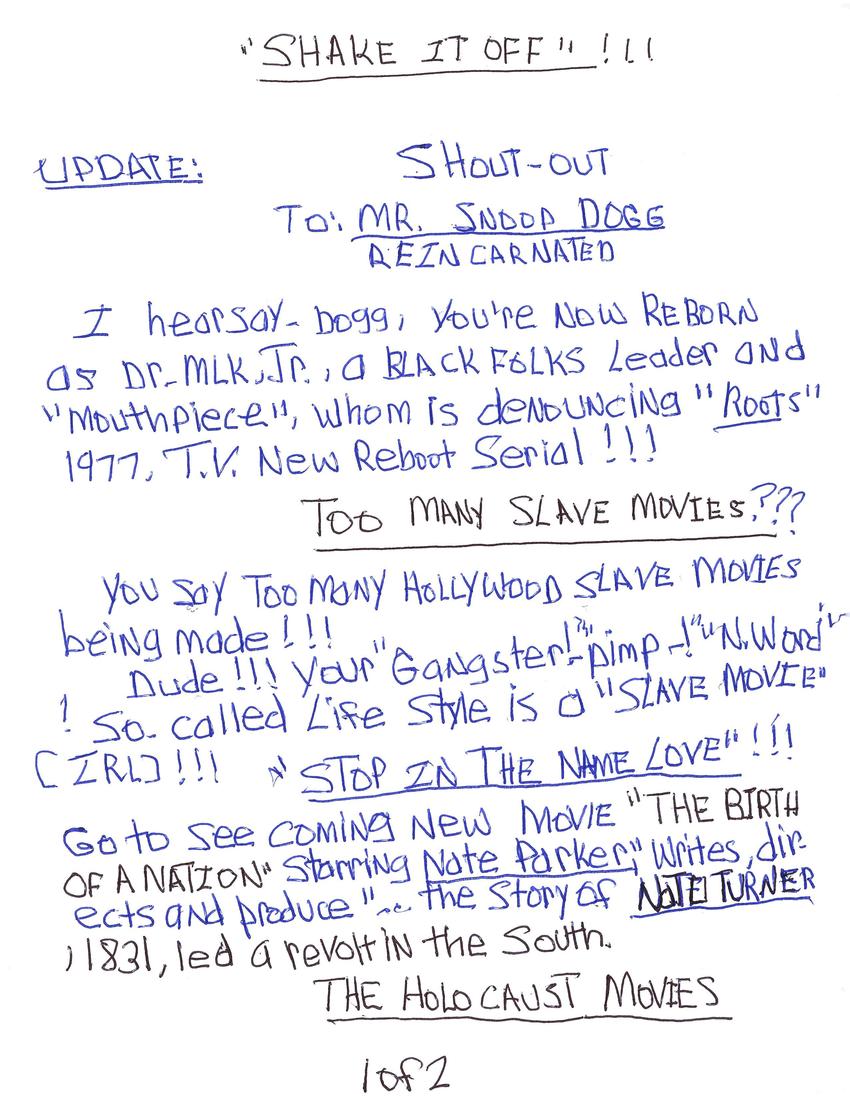 "SHAKE IT OFF" !!!
UPDATE: SHOUT-OUT
TO: MR. SNOOP DOGG
REINCARNATED
I hearsay- Dogg, you're NOW REBORN
as Dr. MLK, Jr., a BLACK FOLKS Leader and
"Mouthpiece", whom is deNOUNCiNg "Roots"
1977, T.V. New Reboot Serial !!!
TOO MANY SLAVE MOVIES???
YOU SAY TOO MANY HOLLYWOOD SLAVE MOVIES
being made !!!
Dude !!! Your "Gangster!"-pimp-!" "N.Word"
! So-called Life Style is a "SLAVE MOVIE"
[IRL] !!! "STOP IN THE NAME LOVE" !!!
Go to see COMING NEW MOVIE "THE BIRTH
OF A NATION" Starring Nate Parker," Writes, dir-
ects and produce "... the Story of NATE TURNER
, 1831, led a revolt in the South.
THE HOLOCAUST MOVIES
1 of 2